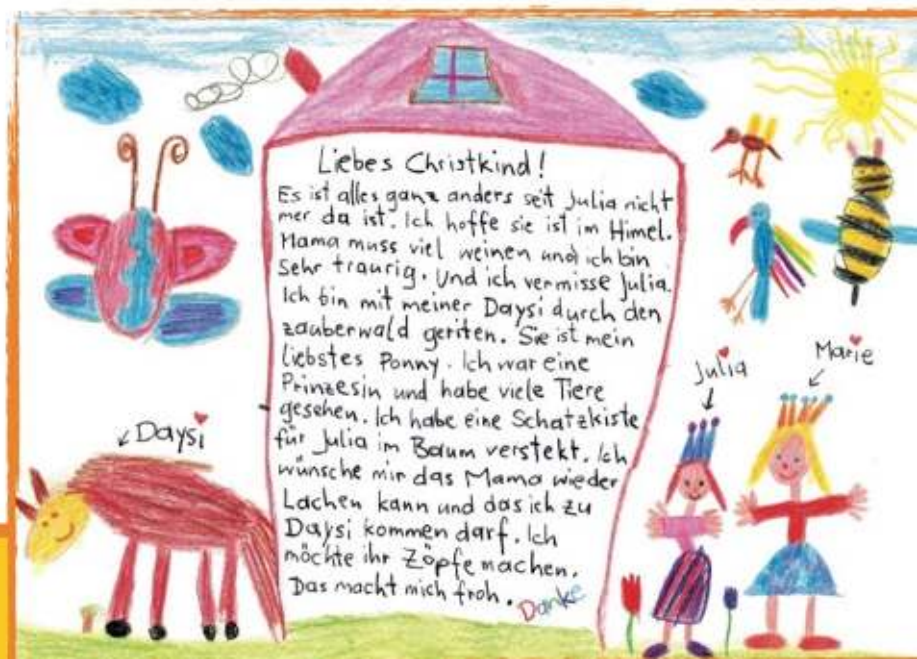 Liebes Christkind!
Es ist alles ganz anders seit Julia nicht
mer da ist. Ich hoffe sie ist im Himel.
Mama muss viel weinen und ich bin
Sehr traurig. Und ich vermisse Julia.
Ich bin mit meiner Daysi durch den
zauberwald geriten. Sie ist mein
liebstes Ponny. Ich war eine
Prinzesin und habe viele Tiere
gesehen. Ich habe eine Schatzkiste
für Julia im Baum verstekt. Ich
wünsche mir das Mama wieder
Lachen kann und das ich zu
Daysi kommen darf. Ich
möchte ihr Zöpfe machen.
Das macht mich froh. Danke
Daysi
Julia
Marie